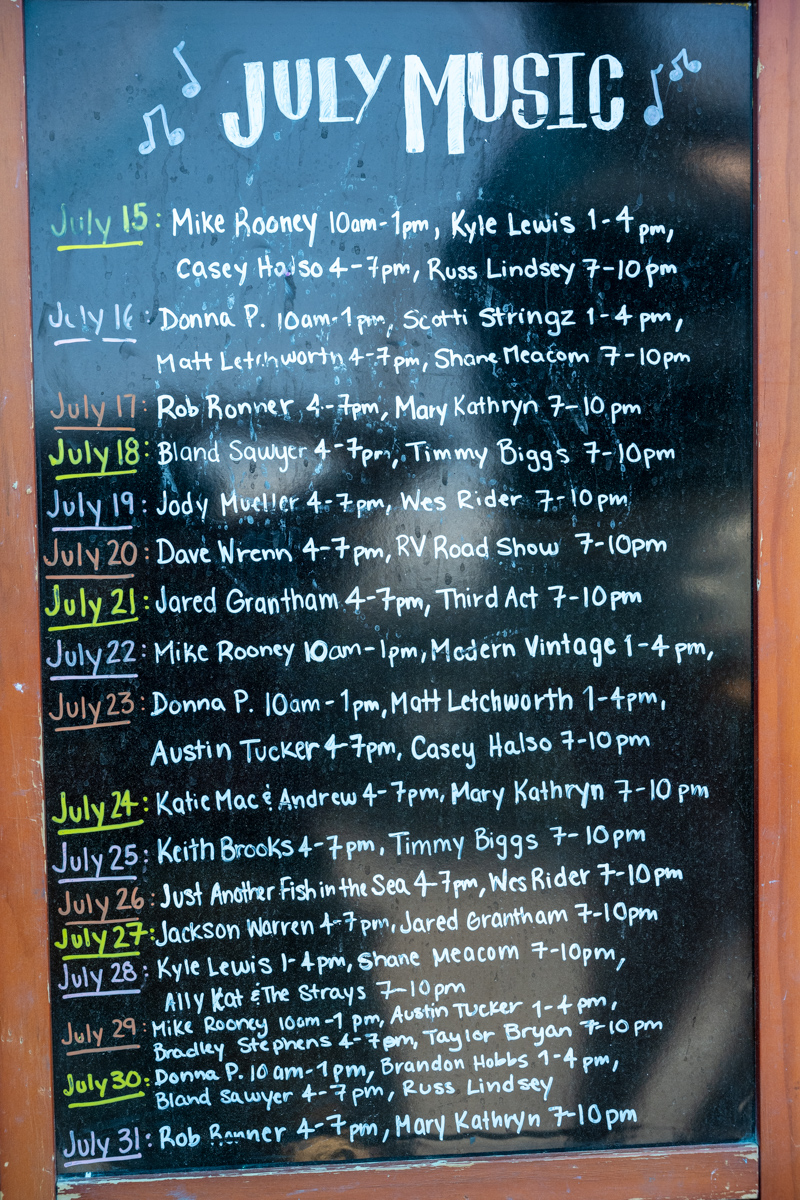 JULY MUSIC
July 15: Mike Rooney 10am-1pm, Kyle Lewis 1-4pm,
Casey Halso 4-7pm, Russ Lindsey 7-10pm
July 16: Donna P. 10am-1pm, Scotti Stringz 1-4pm,
Matt Letchworth 4-7pm, Shane Meacom 7-10pm
July 17: Rob Ronner 4-7pm, Mary Kathryn 7-10pm
July 18: Bland Sawyer 4-7pm, Timmy Biggs 7-10pm
July 19: Jody Mueller 4-7pm, Wes Rider 7-10pm
July 20: Dave Wrenn 4-7pm, RV Road Show 7-10pm
July 21: Jared Grantham 4-7pm, Third Act 7-10pm
July 22: Mike Rooney 10am-1pm, Modern Vintage 1-4pm,
July 23: Donna P. 10am-1pm, Matt Letchworth 1-4pm,
Austin Tucker 4-7pm, Casey Halso 7-10pm
July 24: Katie Mac & Andrew 4-7pm, Mary Kathryn 7-10pm
July 25: Keith Brooks 4-7pm, Timmy Biggs 7-10pm
July 26: Just Another Fish in the Sea 4-7pm, Wes Rider 7-10pm
July 27: Jackson Warren 4-7pm, Jared Grantham 7-10pm
July 28: Kyle Lewis 1-4pm, Shane Meacom 7-10pm,
Ally Kat & The Strays 7-10pm
July 29: Mike Rooney 10am-1pm, Austin Tucker 1-4pm,
Bradley Stephens 4-7pm, Taylor Bryan 7-10pm
July 30: Donna P. 10am-1pm, Brandon Hobbs 1-4pm,
Bland Sawyer 4-7pm, Russ Lindsey
July 31: Rob Ronner 4-7pm, Mary Kathryn 7-10pm